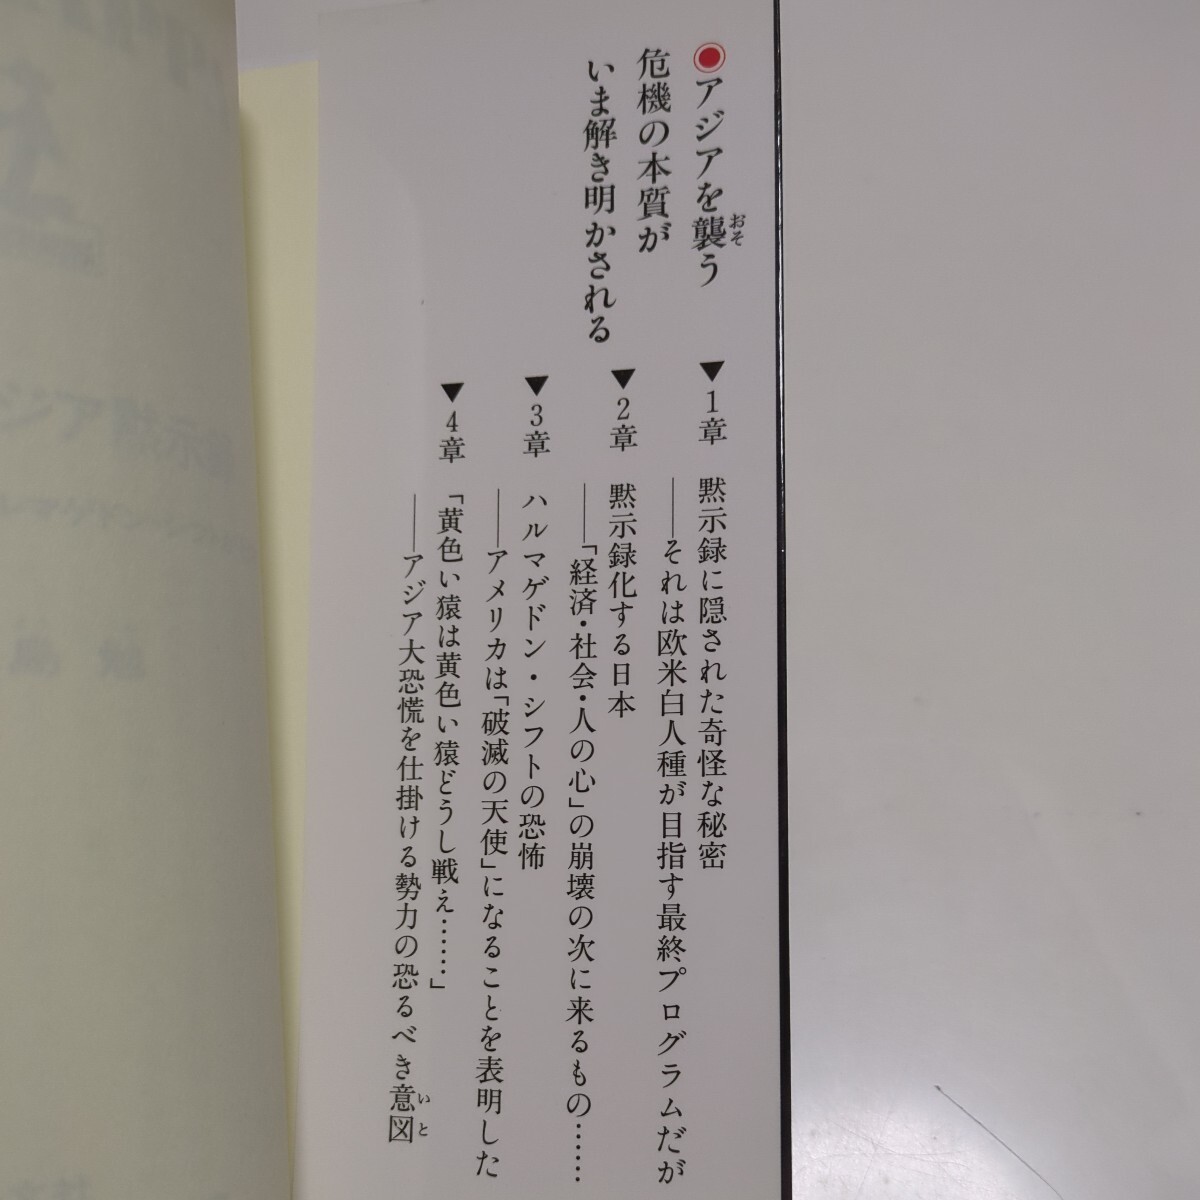 ◉アジアを襲う
おそ
危機の本質が
いま解き明かされる
▼1章 黙示録に隠された奇怪な秘密
――それは欧米白人種が目指す最終プログラムだが
▼2章 黙示録化する日本
――「経済・社会・人の心」の崩壊の次に来るもの……
▼3章 ハルマゲドン・シフトの恐怖
――アメリカは「破滅の天使」になることを表明した
▼4章 「黄色い猿は黄色い猿どうし戦え……」
――アジア大恐慌を仕掛ける勢力の恐るべき意図
いと